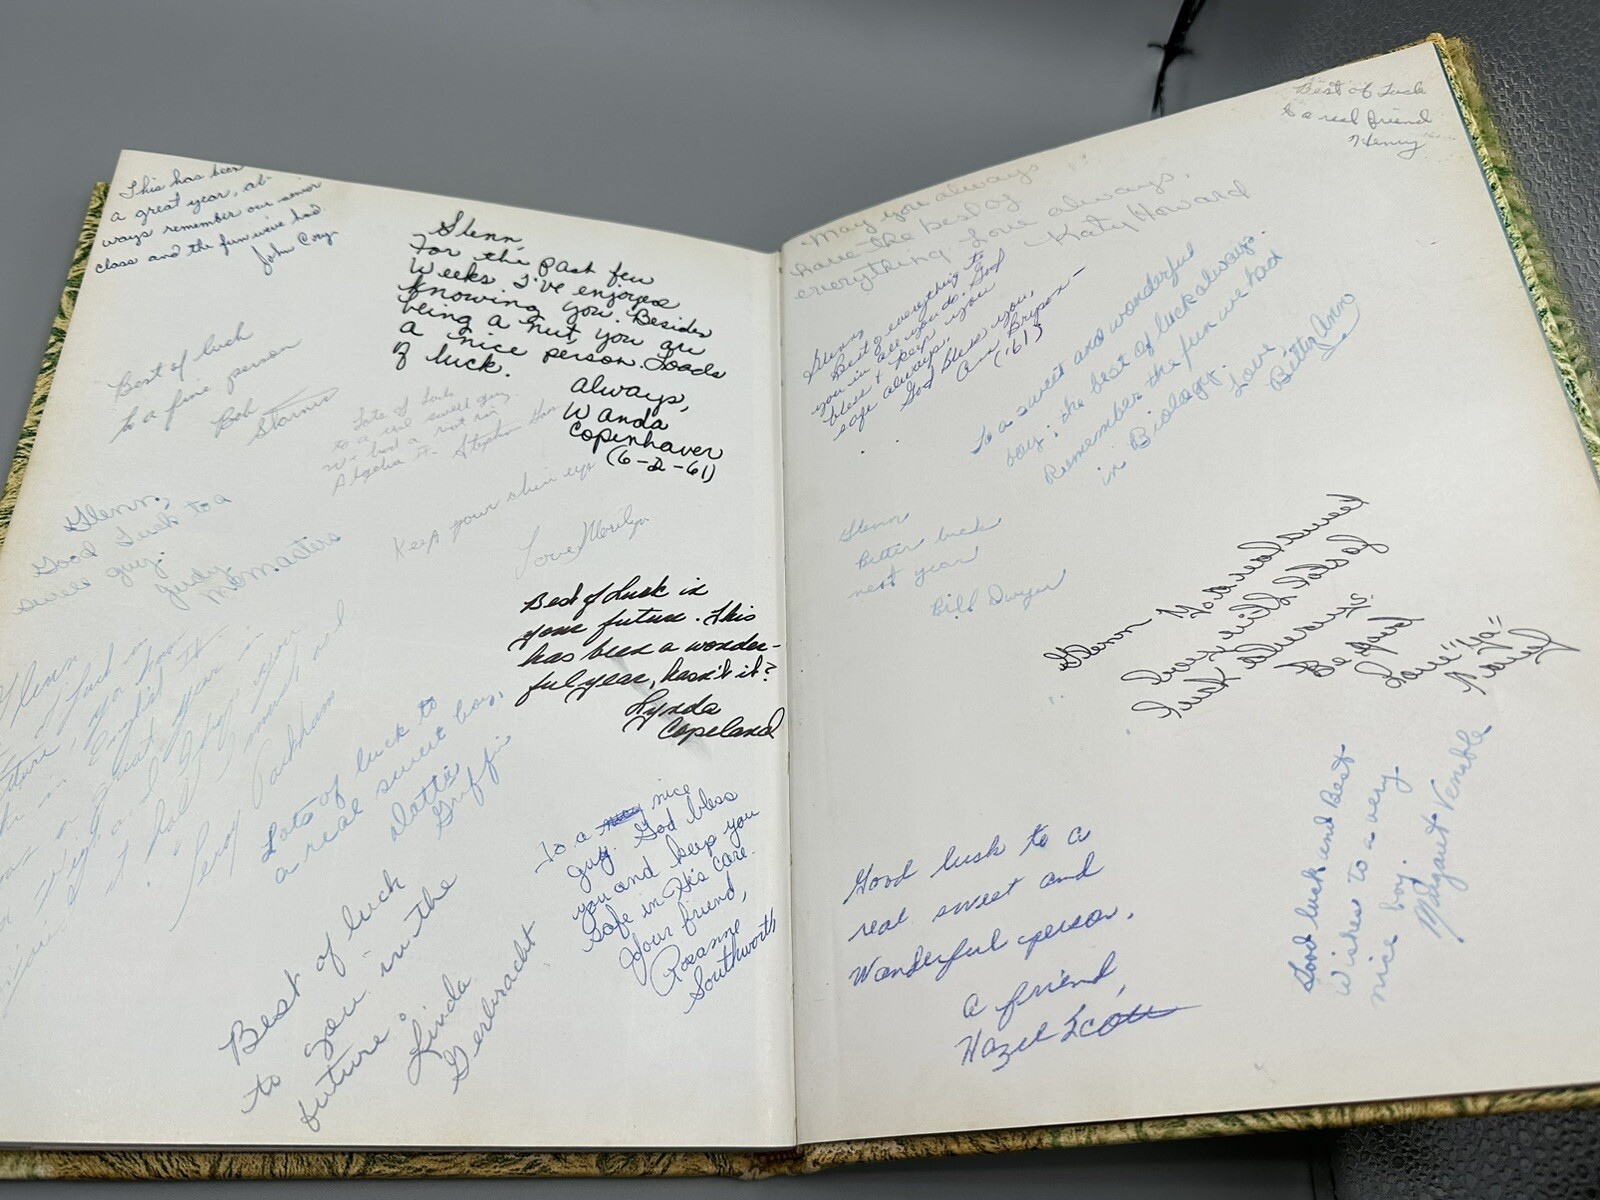 This has been
a great year, al-
ways remember our senior
class and the fun we've had
John Cory
Glenn,
For the past few
Weeks I've enjoyed
knowing you. Besides
being a nut, you are
a nice person. Loads
of luck.
Always,
Wanda
Copenhaver
(6-2-61)
Best of luck
to a fine person
Bob
Starnes
Lots of luck
to a real sweet guy.
We had a riot in
Algebra II
Stephen
Keep your chin up
Love, Marilyn
Glenn,
Good Luck to a
swell guy.
Judy
McMasters
Best of Luck in
your future. This
has been a wonder-
ful year, hasn't it?
Lynda
Copeland
Glenn
English II
Parkham
Lots of luck to
a real sweet boy,
Griffin
To a nice
guy. God bless
you and keep you
safe in His care.
Your friend,
Roxanne
Southworth
Best of luck
to you in the
future.
Linda
Gerbracht
Best of Luck
to a real friend
Henry
May you always
have the best of
everything. Love always,
Katy Howard
Glenn,
Best of everything to
you in all you do. God
bless & keep you
safe always.
God bless you,
Ann Bryson
('61)
To a sweet and wonderful
boy; the best of luck always.
Remember the fun we had
in Biology.
Love
Bitter Ann
Glenn
Better luck
next year
Bill Dwyer
Glenn To a real sweet
boy with lots of
luck always.
Be good
Love "Ya"
Good luck and Best
Wishes to a very
nice boy.
Margaret Venible
Good luck to a
real sweet and
Wonderful person.
A friend,
Hazel Scott